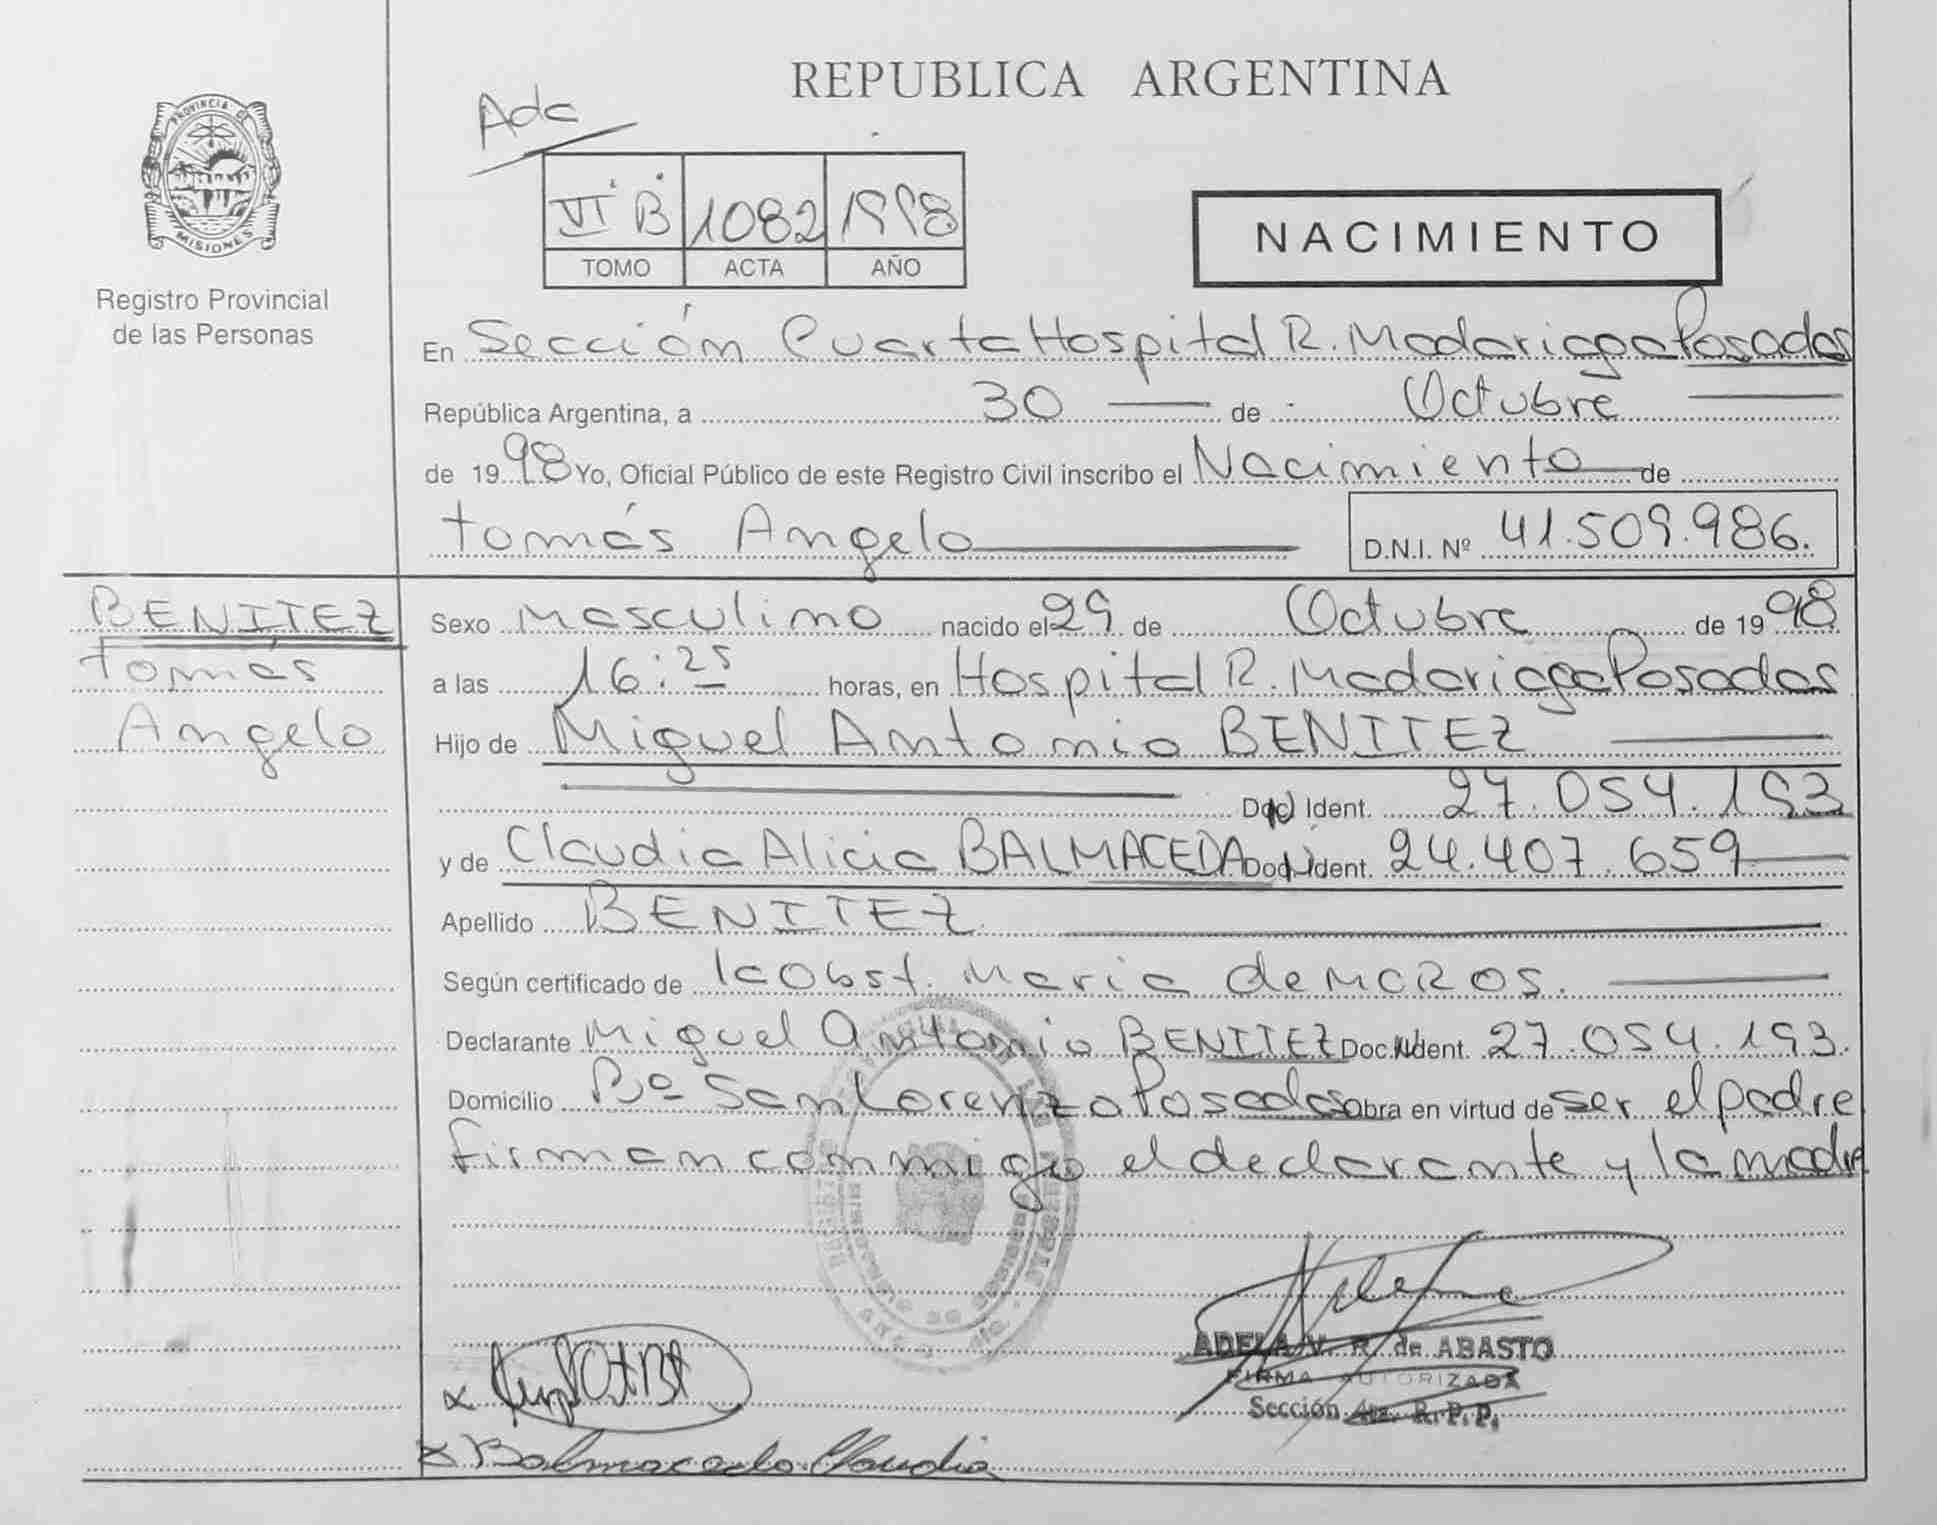 REPUBLICA ARGENTINA
PROVINCIA DE
MISIONES
Registro Provincial
de las Personas
Ada
VI B 1082 1998
TOMO ACTA AÑO
NACIMIENTO
En Sección Cuarta Hospital R. Madariaga Posadas
República Argentina, a 30 de Octubre
de 1998 Yo, Oficial Público de este Registro Civil inscribo el Nacimiento de
Tomás Angelo
D.N.I. Nº 41.509.986.
BENITEZ
Tomás
Angelo
Sexo Masculino nacido el 29 de Octubre de 1998
a las 16:25 horas, en Hospital R. Madariaga Posadas
Hijo de Miguel Antonio BENITEZ
Doc. Ident. 27.054.193
y de Claudia Alicia BALMACEDA Doc. Ident. 24.407.659
Apellido BENITEZ
Según certificado de la Obst. Maria de MOROS.
Declarante Miguel Antonio BENITEZ Doc. Ident. 27.054.193.
Domicilio Bº San Lorenzo Posadas obra en virtud de ser el padre
firman conmigo el declarante y la madre
ADELA V. R. de ABASTO
FIRMA AUTORIZADA
Sección 4ta. R. P. P.
x
x Balmaceda Claudia